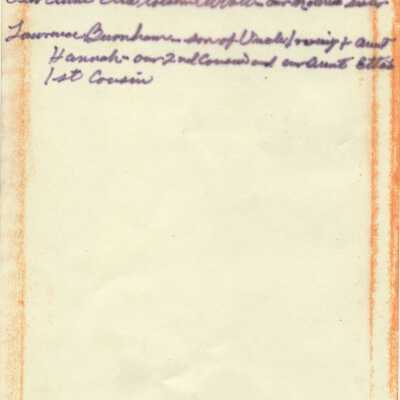 Our Aunt
Lawrence Burnham - son of Uncle Irving & Aunt
Hannah - our 2nd Cousin and our Aunt Etta's
1st Cousin